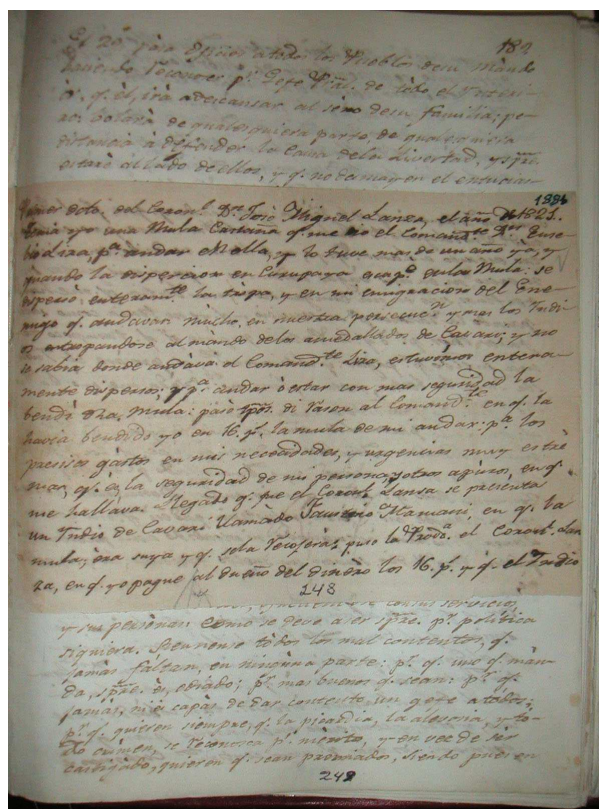 182
El 20 pasa oficios a todos los Pueblos de su mando
haciendo reconocer pr. Gefe
qe. él, irá a descansar al seno de su familia; pe-
ro volará de qualesquiera parte, de qualesquiera
distancia à defender la causa dela Livertad, y spre.
estará al lado de ellos, y qe. no desmayen el entucias-
1886
Primer dcto. del Coronl. Dn. José Miguel Lanza, el año de 1821.
Tenia yo una Mula Castaña qe. me dio el Comandte. Dn. Euse-
bio Lira, pa. andar en ella, y la tuve mas de un año yo, y
quando la dispercion en Curupaya en la Mula: se
disperso enteramte. la tropa, y en mi emigracion del Ene-
migo qe. andavan mucho, en nuestra persecucn. y mas los Indi-
os al mando delos amedallados de Cavari; y no
se sabia donde andava el Comandte. Lira, estuvimos entera-
mente dispersos; y pa. andar ò estar con mas seguridad la
bendi dha. Mula: paso tpo. di razon al Comandte. en qe. la
havia bendido yo en 16. ps. la mula de mi andar: pa. los
precisos gastos en mis necesidades, y urgencias muy estre-
mas, qe. en la seguridad de mi persona, y otros apuros, en qe.
me hallava. Llegado qe. fue el Coronl. Lanza se presenta
un Indio de Cavari llamado Mamani, en qe. la
mula, era suya y qe. se la recojerá; puso la Proda. el Coronl. Lan-
za, en qe. yo pague al dueño del dinero los 16. ps. y qe. el Indio
248
y sus personas como se deve a ser spre. pr. politica
siquiera. Reunense todos los mal contentos, qe.
jamas faltan, en ninguna parte: pr. qe. uno qe. man-
da, spre. es, odiado; pr. mas bueno qe. sean: pr. qe.
jamas, ni es capas de dar contento, un gefe a todos;
pr. qe. quieren siempre, qe. la picardia, la alevosia, y to-
do crimen, se reconosca pr. merito, y en ves de ser
castigado, quieren qe. sean premiados, siendo pues en
248